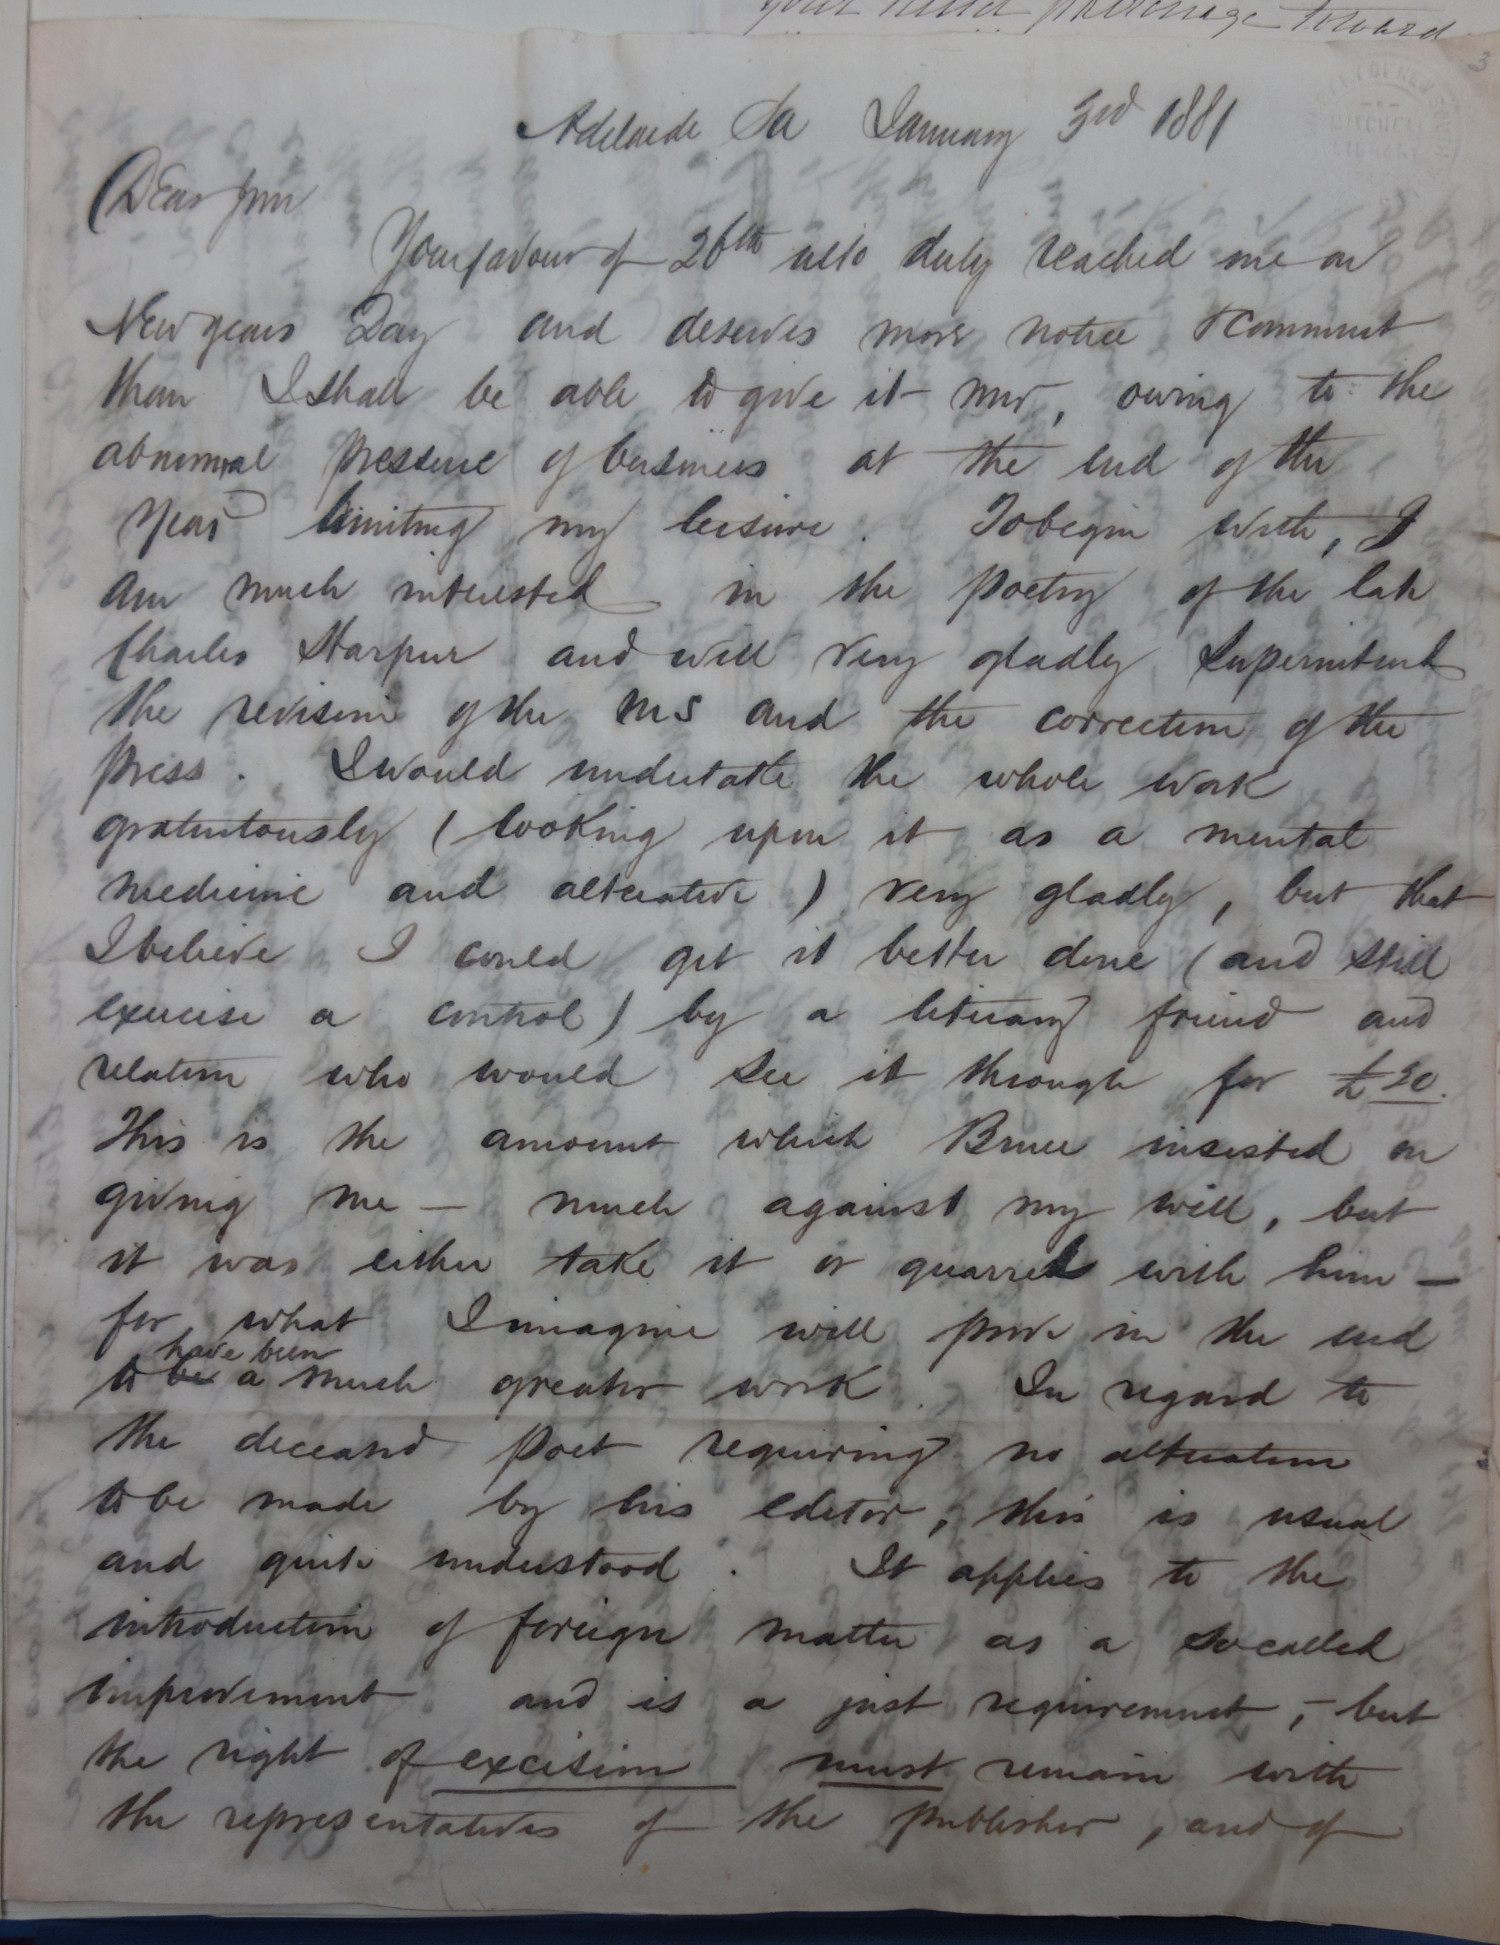 your kind patronage toward
3
Adelaide Sa January 3rd 1881
Dear Jim
Your favour of 26th ulto duly reached me on
New years Day and deserves more notice & comment
than I shall be able to give it now, owing to the
abnormal pressure of business at the end of the
year limiting my leisure. To begin with, I
am much interested in the poetry of the late
Charles Harpur and will very gladly superintend
the revision of the MS and the correction of the
press. I would undertake the whole work
gratuitously (looking upon it as a mental
medicine and alterative) very gladly, but that
I believe I could get it better done (and still
exercise a control) by a literary friend and
relation who would see it through for £20.
This is the amount which Bruce insisted on
giving me — much against my will, but
it was either take it or quarrel with him —
for what I imagine will prove in the end
have been
to be a much greater work. In regard to
the deceased poet requiring no alteration
to be made by his editor, this is usual
and quite understood. It applies to the
introduction of foreign matter as a so called
improvement and is a just requirement, — but
the right of excision must remain with
the representatives of the publisher, and of